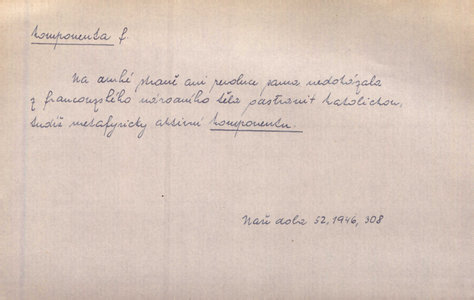 komponenta f.
Na druhé straně ani revoluce sama nedokázala
z francouzského národního těla odstranit katolickou,
tudíž metafysicky aktivní komponentu.
Naše doba 52, 1946, 308